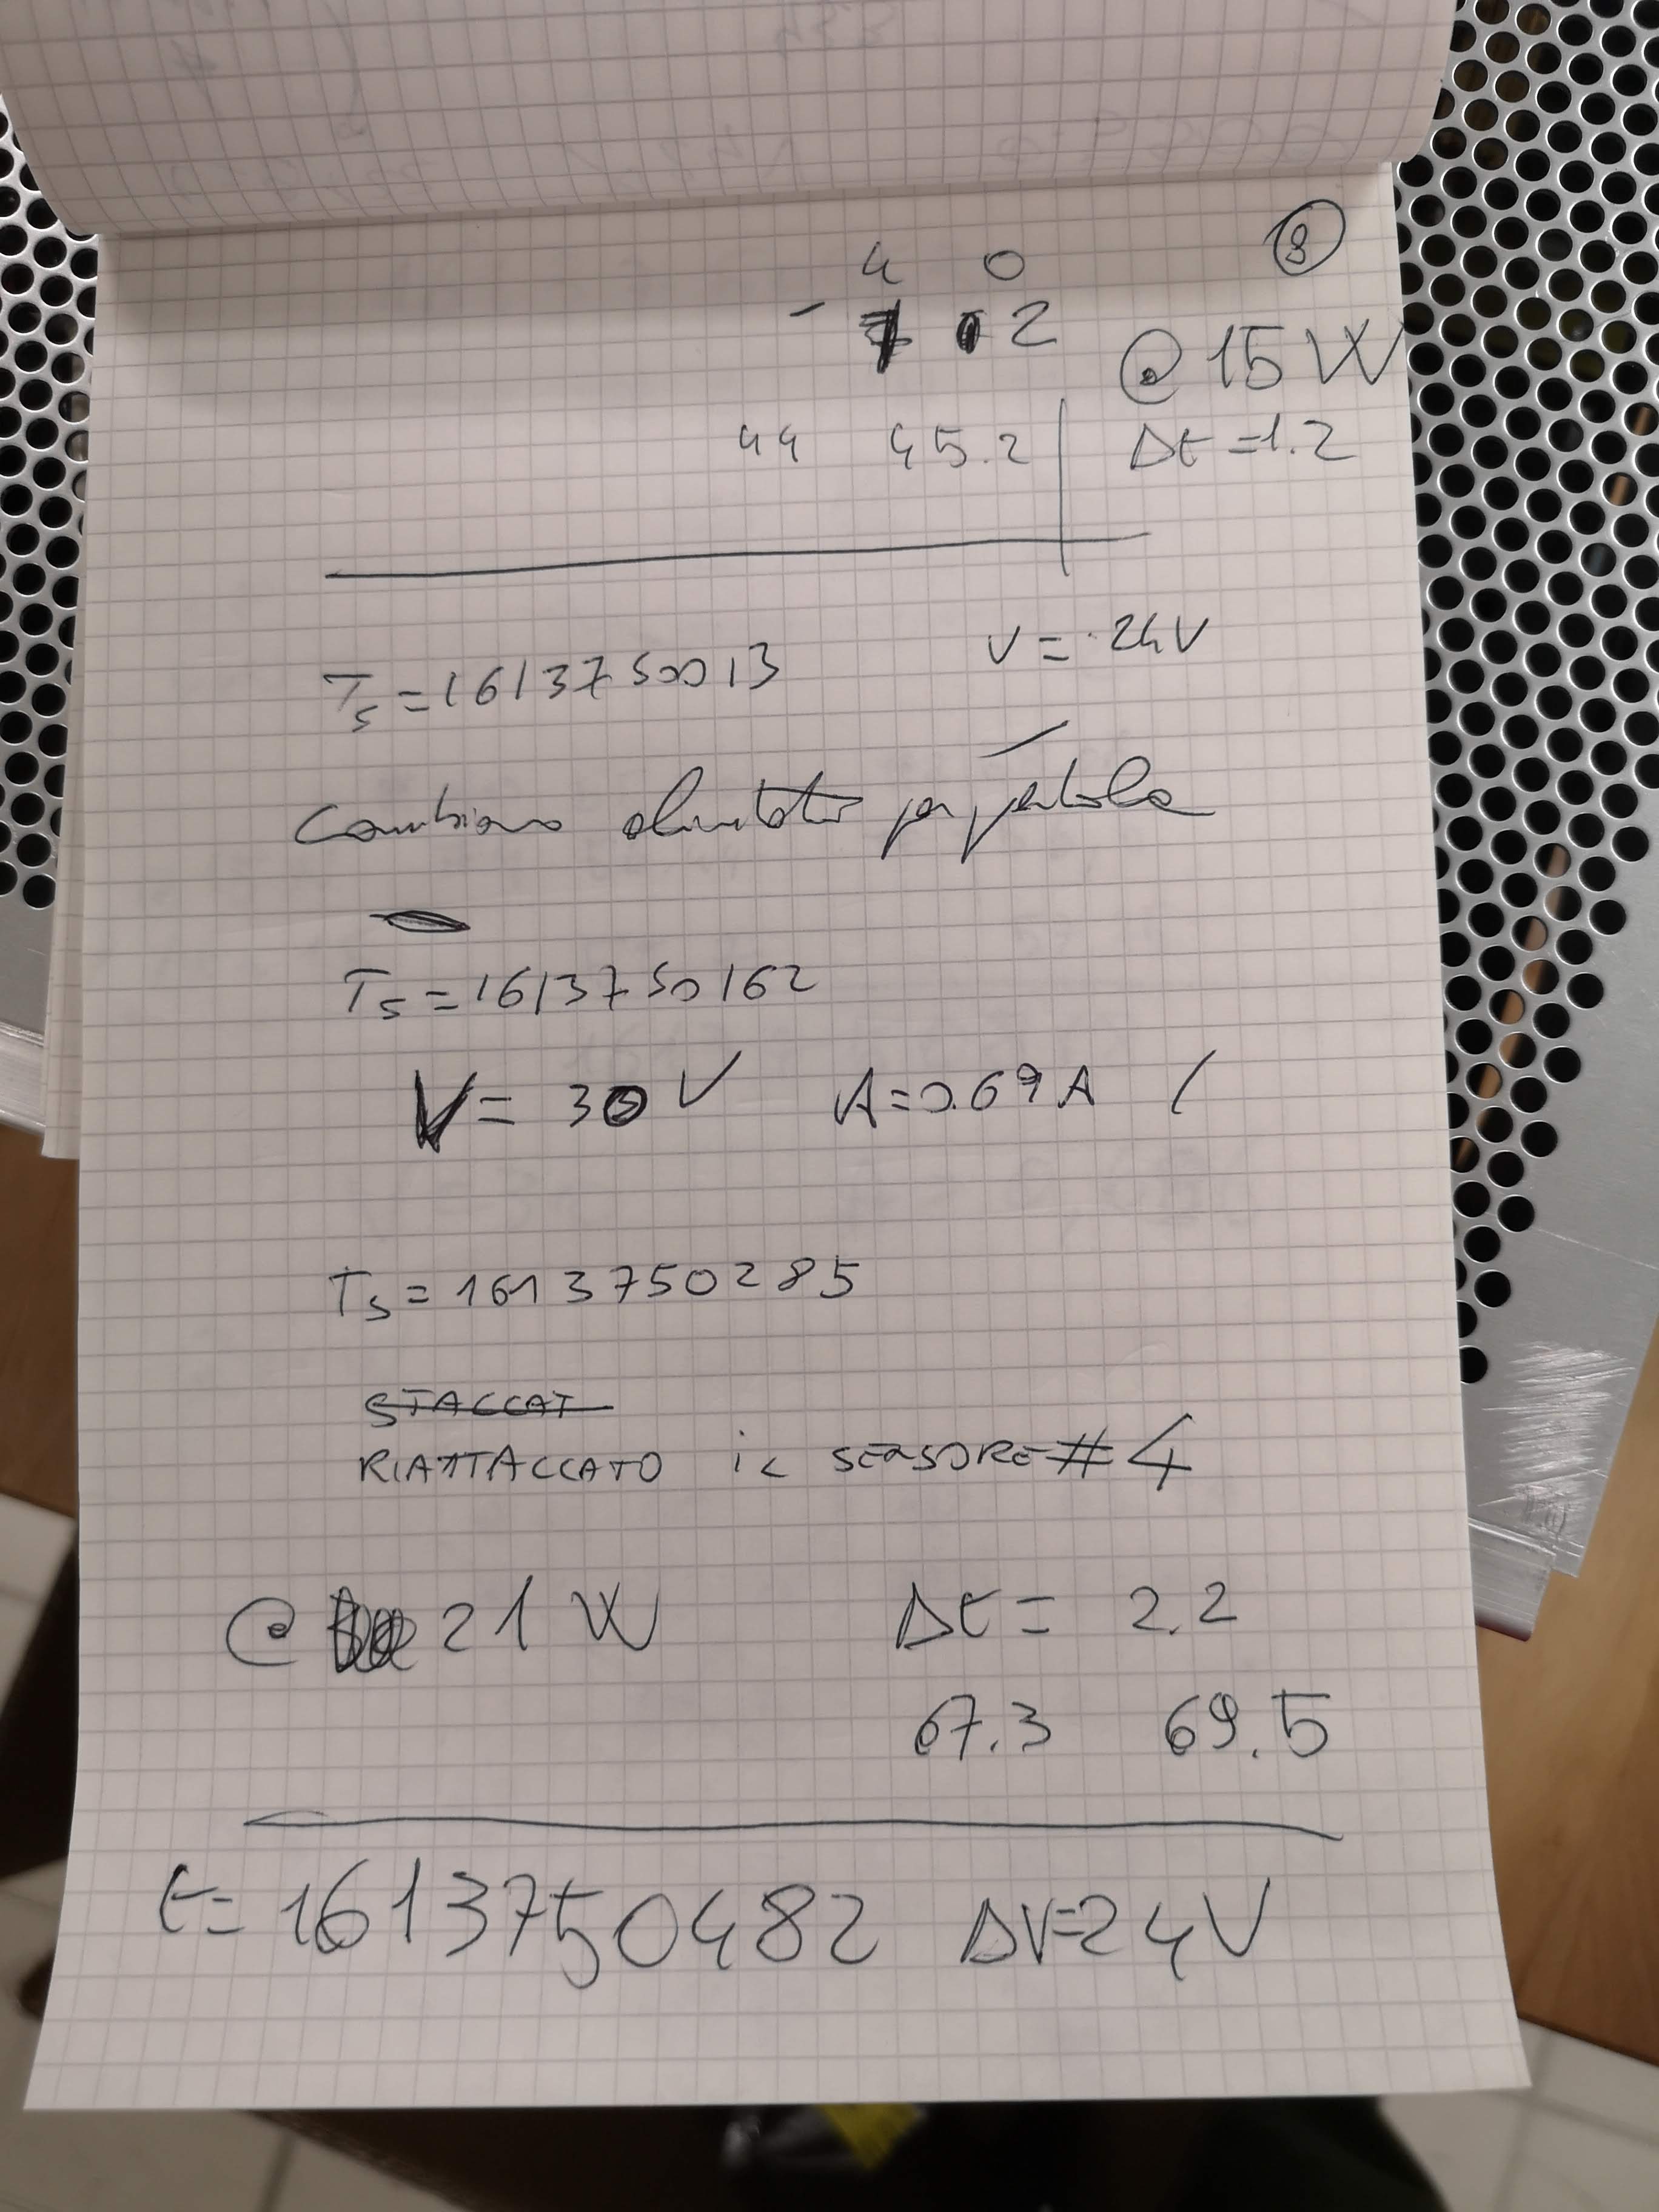 8
4 0
- 2
@ 15 W
44 45.2 Δt = 1.2
Ts = 1613750013 V = 24V
Cambiamo alimentatore per
Ts = 1613750162
V = 30 V A = 0.69 A /
Ts = 1613750285
STACCAT
RIATTACCATO il SENSORE #4
@ 21 W Δt = 2.2
67.3 69.5
t = 1613750482 ΔV=24V